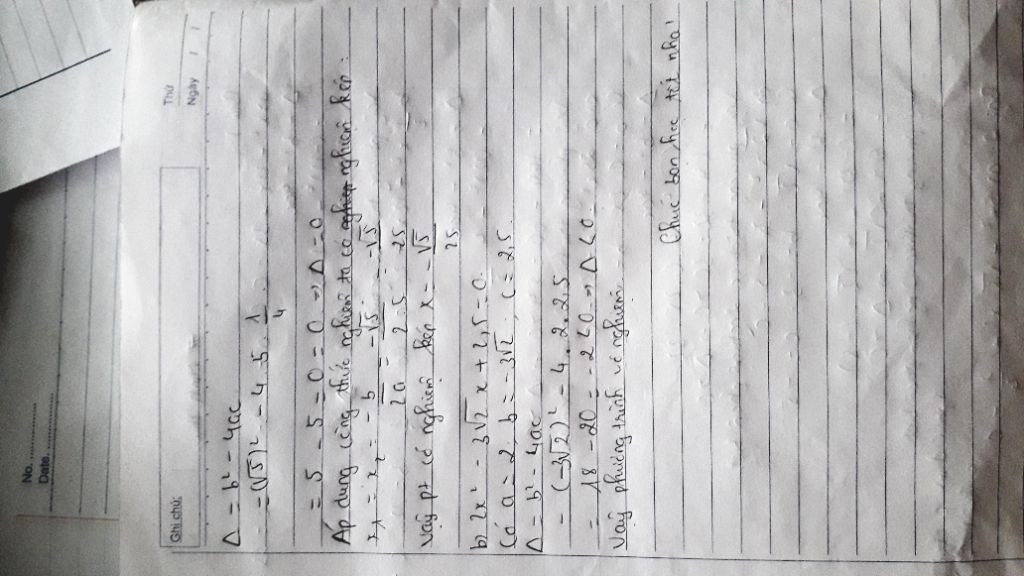 No. ............
Date. ............
Thứ
Ngày / /
Ghi chú:
Δ = b² - 4ac
= (√5)² - 4.5.1/4
= 5 - 5 = 0 = 0 → Δ = 0
Áp dụng công thức nghiệm ta có nghiệp nghiệm kép:
x₁ = x₂ = -b/2a = -√5/2.5 = -√5/25
Vậy pt có nghiệm kép x = -√5/25
b) 2x² - 3√2 x + 2,5 = 0
Có a = 2, b = -3√2, c = 2,5
Δ = b² - 4ac
= (-3√2)² - 4.2.2,5
= 18 - 20 = -2 < 0 → Δ < 0
Vậy phương trình vô nghiệm
Chúc bạn học tốt nha!